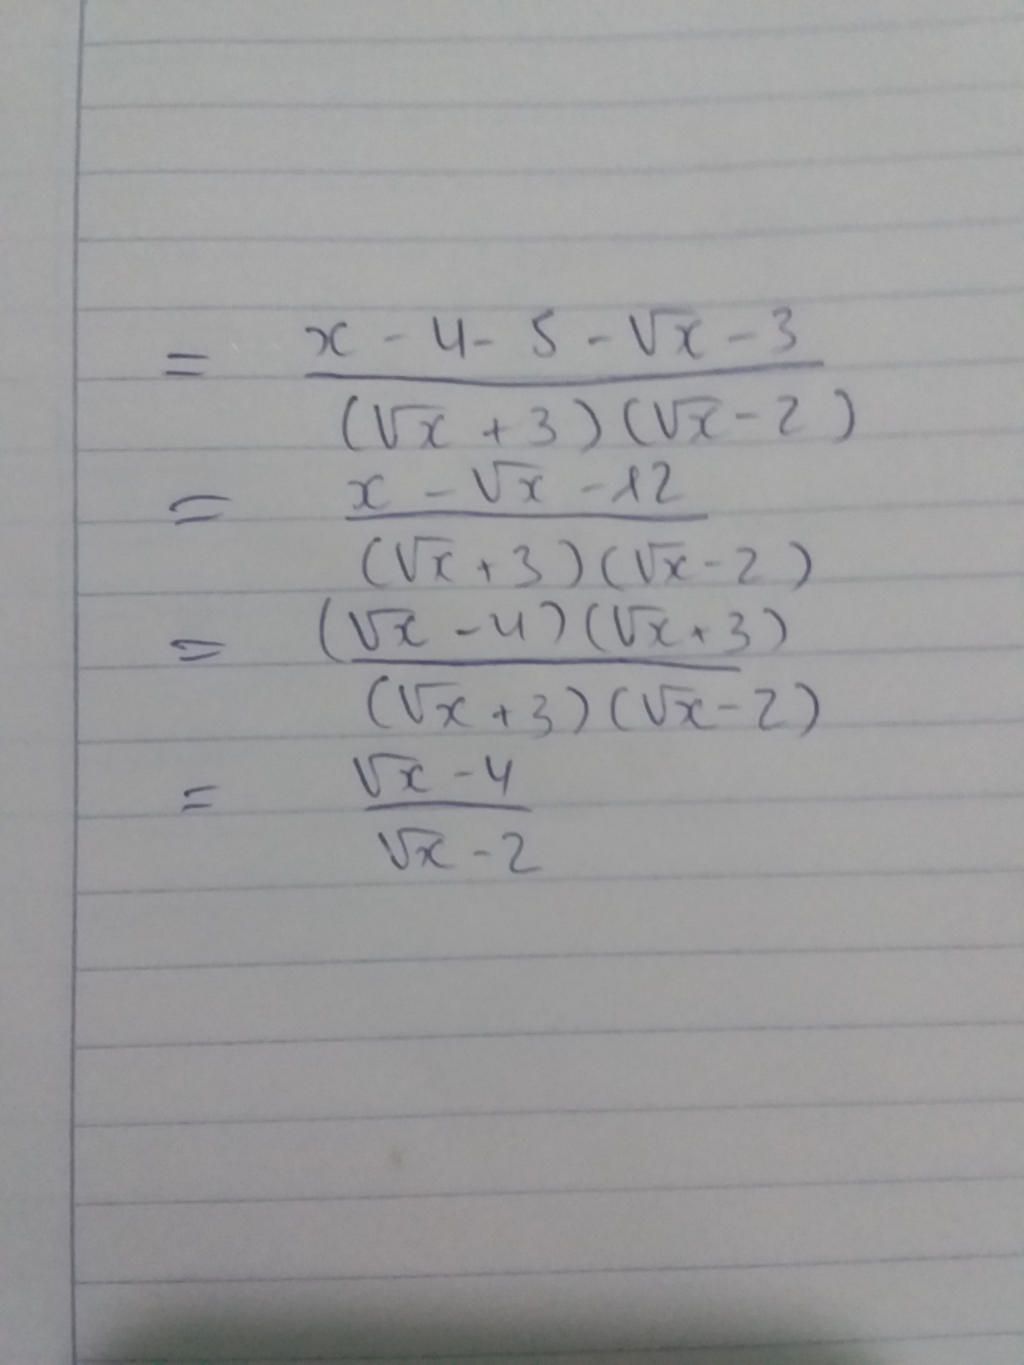 = x - 4 - 5 - √x - 3
(√x + 3)(√x - 2)
= x - √x - 12
(√x + 3)(√x - 2)
= (√x - 4)(√x + 3)
(√x + 3)(√x - 2)
= √x - 4
√x - 2